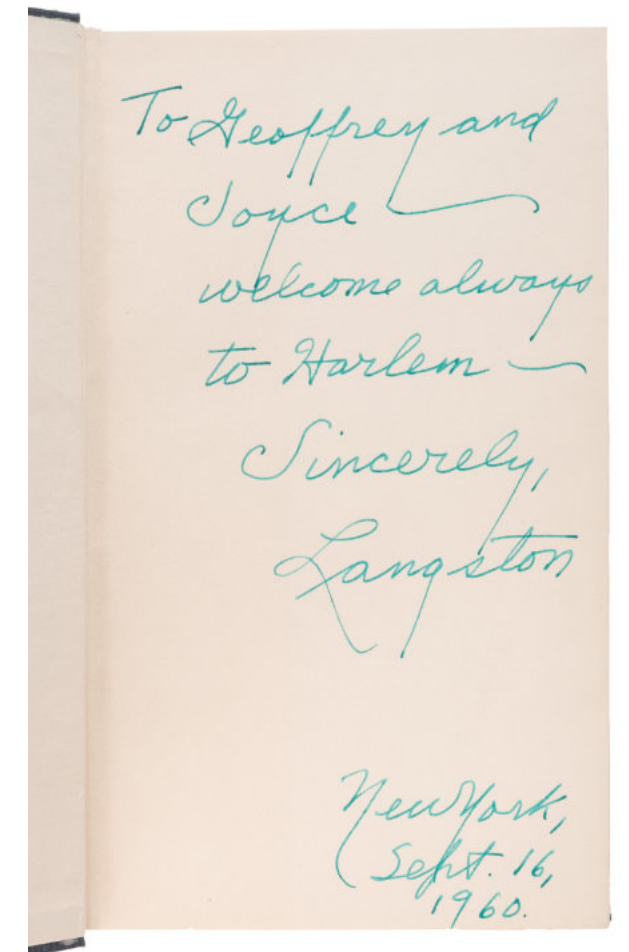 To Geoffrey and
Joyce —
welcome always
to Harlem —
Sincerely,
Langston
New York,
Sept. 16,
1960.